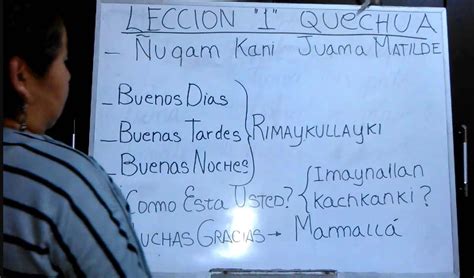 LECCION "1" QUECHUA
- Ñuqam Kani Juama MATILDE
- Buenos Dias
- Buenas Tardes RIMAYKULLAYKI
- Buenas Noches
Como Esta Usted? Imaynallan kachkanki?
UCHAS GRACIAS → Mammallcá